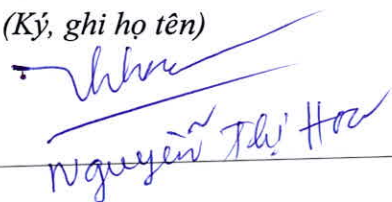 (Ký, ghi họ tên)
Nguyễn Thị Hoa